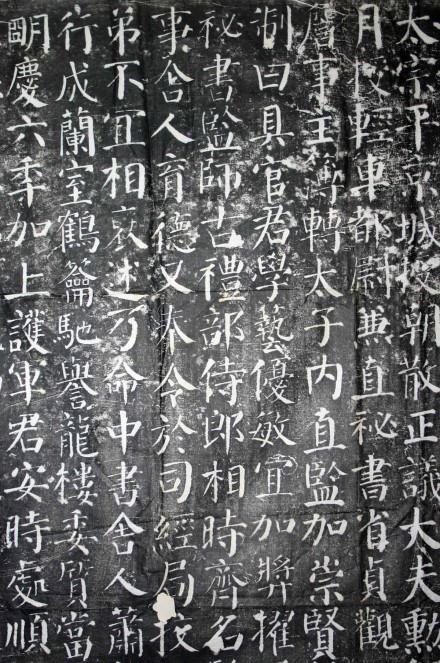 太宗平京城授朝散正議大夫勳
月授輕車都尉兼直秘書省貞觀
屬事主簿轉太子內直監加崇賢
制曰具官君學藝優敏宜加獎擢
秘書監師古禮部侍郎相時齊名
事舍人育德又奉令於司經局校
弟不宜相褒述乃命中書舍人蕭
行成蘭室鶴籥馳譽龍樓委質當
朙慶六年加上護軍君安時處順